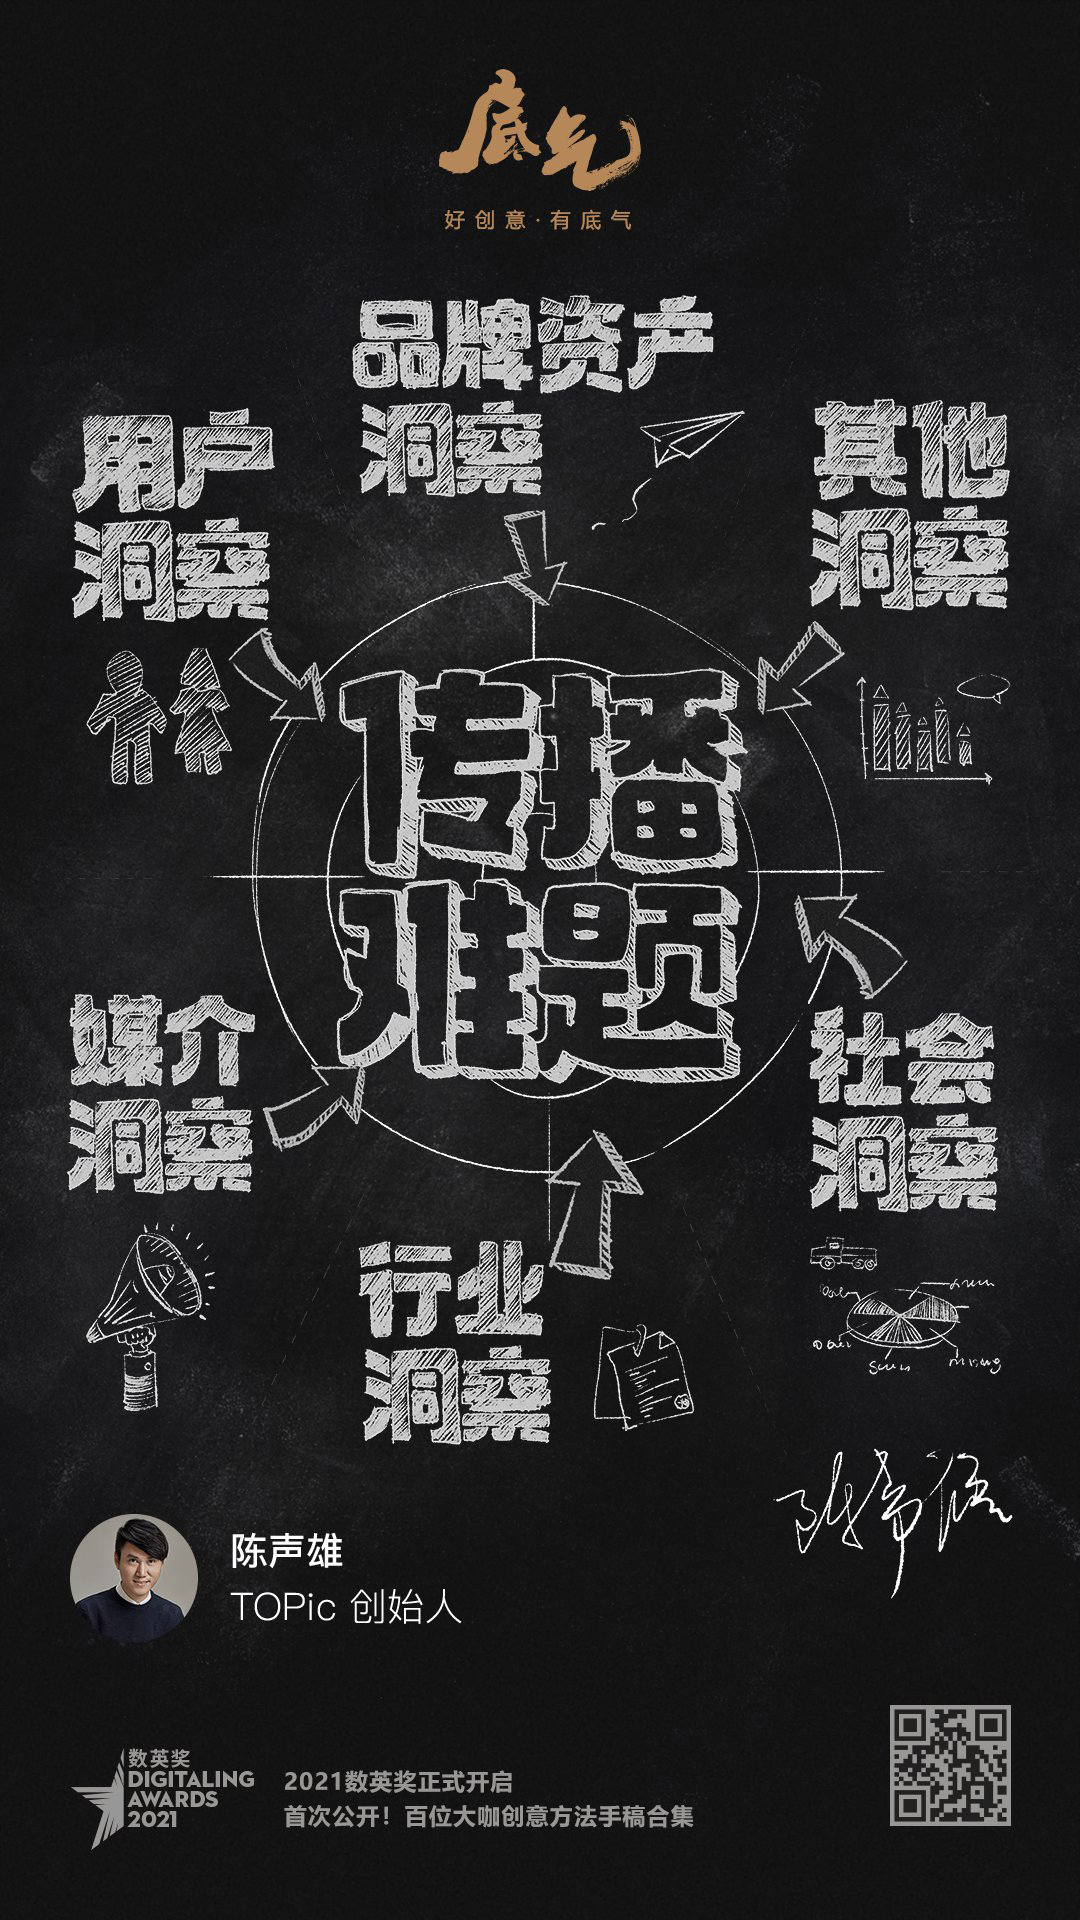 底气
好创意·有底气
品牌资产
洞察
用户
洞察
其他
洞察
传播
难题
媒介
洞察
社会
洞察
行业
洞察
陈声雄
TOPic 创始人
数英奖
DIGITALING
AWARDS
2021
2021数英奖正式开启
首次公开！百位大咖创意方法手稿合集